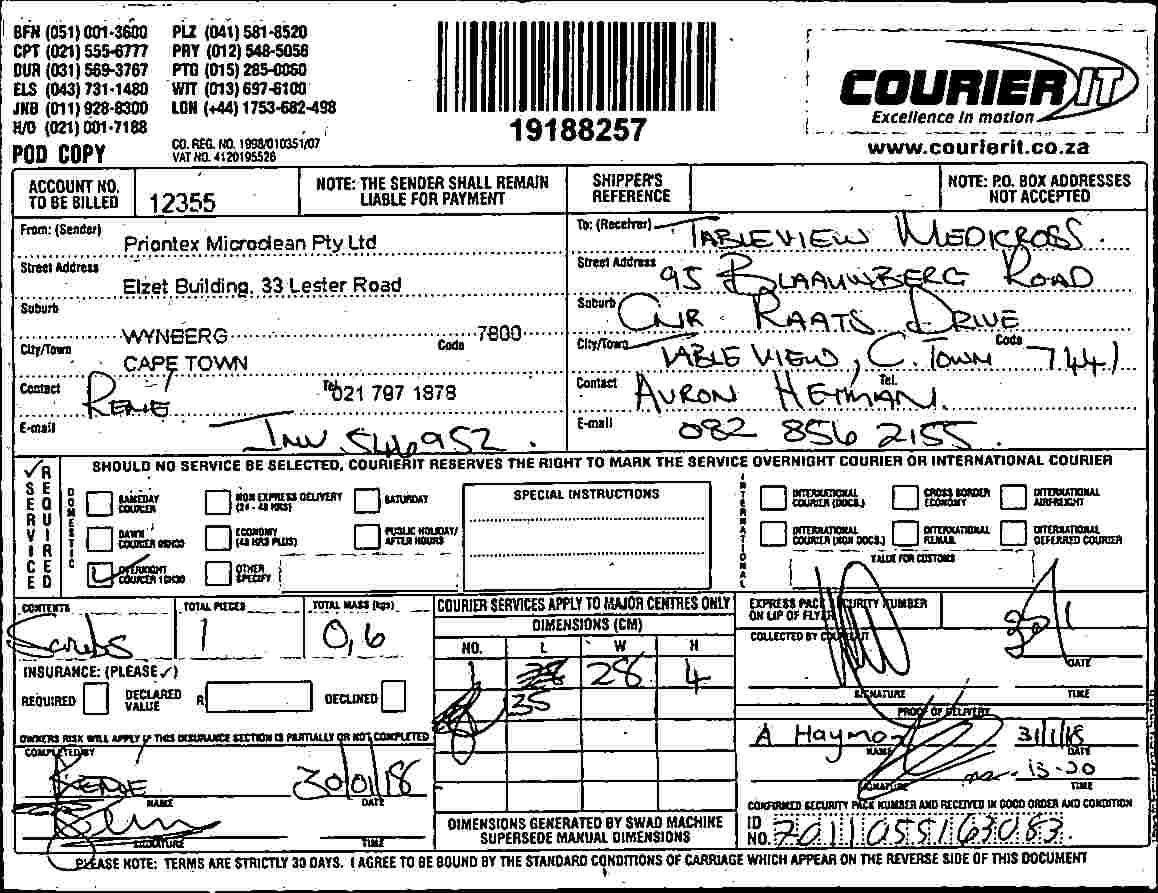 BFN (051) 001-3600 PLZ (041) 581-8520
CPT (021) 555-6777 PRY (012) 548-5058
DUR (031) 569-3767 PTG (015) 285-0060
ELS (043) 731-1480 WIT (013) 697-6100
JNB (011) 928-8300 LON (+44) 1753-682-498
H/O (021) 001-7188
POD COPY
CO. REG. NO. 1998/010351/07
VAT NO. 4120195526
19188257
COURIER IT
Excellence in motion
www.courierit.co.za
ACCOUNT NO. TO BE BILLED 12355
NOTE: THE SENDER SHALL REMAIN LIABLE FOR PAYMENT
SHIPPER'S REFERENCE
NOTE: P.O. BOX ADDRESSES NOT ACCEPTED
From: (Sender) Priontex Microclean Pty Ltd
Street Address Elzet Building, 33 Lester Road
Suburb WYNBERG Code 7800
City/Town CAPE TOWN
Contact RENE Tel 021 797 1878
E-mail INV 546952.
To: (Receiver) TABLEVIEW MEDICROSS.
Street Address 95 BLAAUWBERG ROAD
Suburb CNR RAATS DRIVE
City/Town TABLE VIEW, C. TOWN Code 7441
Contact AVRON HEYMAN. Tel.
E-mail 082 856 2155.
SERVICE REQUIRED
SHOULD NO SERVICE BE SELECTED, COURIERIT RESERVES THE RIGHT TO MARK THE SERVICE OVERNIGHT COURIER OR INTERNATIONAL COURIER
DOMESTIC
SAMEDAY COURIER
NON EXPRESS DELIVERY (24 - 48 HRS)
SATURDAY
DAWN COURIER
ECONOMY (48 HRS PLUS)
PUBLIC HOLIDAY/ AFTER HOURS
OVERNIGHT COURIER 10H30
OTHER SPECIFY
SPECIAL INSTRUCTIONS
INTERNATIONAL
INTERNATIONAL COURIER (DOCS.)
CROSS BORDER ECONOMY
INTERNATIONAL AIRFREIGHT
INTERNATIONAL COURIER (NON DOCS.)
INTERNATIONAL REMAIL
INTERNATIONAL DEFERRED COURIER
VALUE FOR CUSTOMS
CONTENTS Scrubs
TOTAL PIECES 1
TOTAL MASS (kgs) 0,6
INSURANCE: (PLEASE ✓)
REQUIRED DECLARED VALUE R DECLINED
OWNERS RISK WILL APPLY IF THIS INSURANCE SECTION IS PARTIALLY OR NOT COMPLETED
COMPLETED BY
RENE NAME 30/01/18 DATE
SIGNATURE TIME
COURIER SERVICES APPLY TO MAJOR CENTRES ONLY
DIMENSIONS (CM)
NO. L W H
1 28 4
35
DIMENSIONS GENERATED BY SWAD MACHINE SUPERSEDE MANUAL DIMENSIONS
EXPRESS PACK SECURITY NUMBER ON LIP OF FLYER
COLLECTED BY COURIERIT
DATE
SIGNATURE TIME
PROOF OF DELIVERY
A Hayman NAME 31/1/18 DATE
SIGNATURE 13-20 TIME
CONFIRMED SECURITY PACK NUMBER AND RECEIVED IN GOOD ORDER AND CONDITION
ID NO. 7011055163083
PLEASE NOTE: TERMS ARE STRICTLY 30 DAYS. I AGREE TO BE BOUND BY THE STANDARD CONDITIONS OF CARRIAGE WHICH APPEAR ON THE REVERSE SIDE OF THIS DOCUMENT